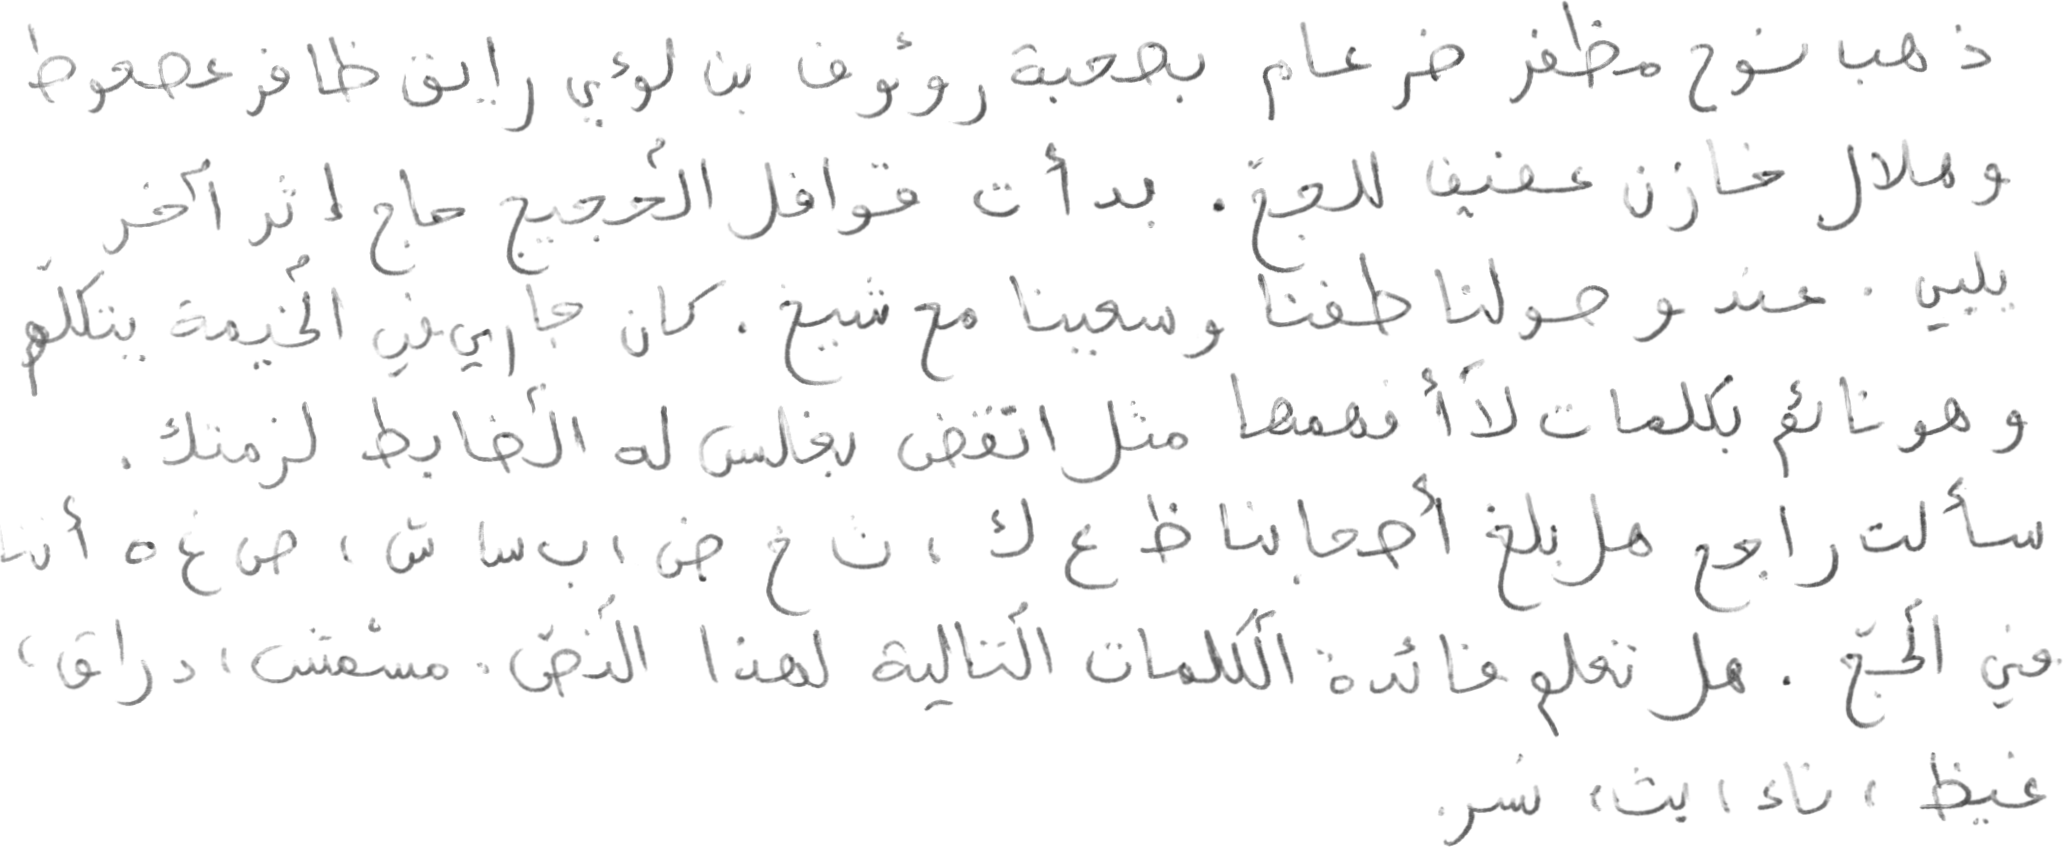 ذهب نوح مظفر ضرغام بصحبة رؤوف بن لؤي رايق ظافر عصعوط
وهلال خازن عفيف للحجّ. بدأت قوافل الحجيج حاج إثر آخر
يلبي. عند وصولنا طفنا وسعينا مع شيخ. كان جاري في الخيمة يتكلّم
وهو نائم بكلمات لا أفهمها مثل اتقض بغلس له الضابط لزمتك.
سألت راجع هل بلغ أصحابنا ظ ع ك، ث خ ض، ب سا ش، ص غ ه أننا
في الحجّ. هل تعلم فائدة الكلمات التالية لهذا النصّ. مسشمش، دراق،
غيظ، ناء، يث، نسر.